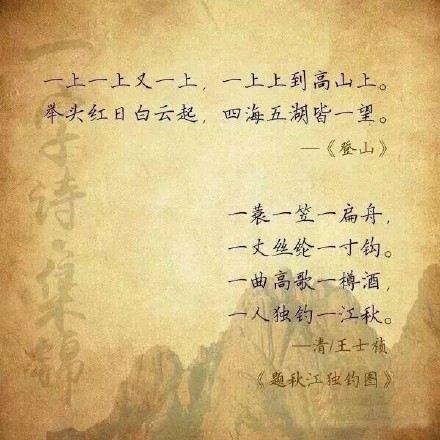 一字诗·集锦
一上一上又一上，一上上到高山上。
举头红日白云起，四海五湖皆一望。
—《登山》
一蓑一笠一扁舟，
一丈丝纶一寸钩。
一曲高歌一樽酒，
一人独钓一江秋。
—清/王士祯
《题秋江独钓图》